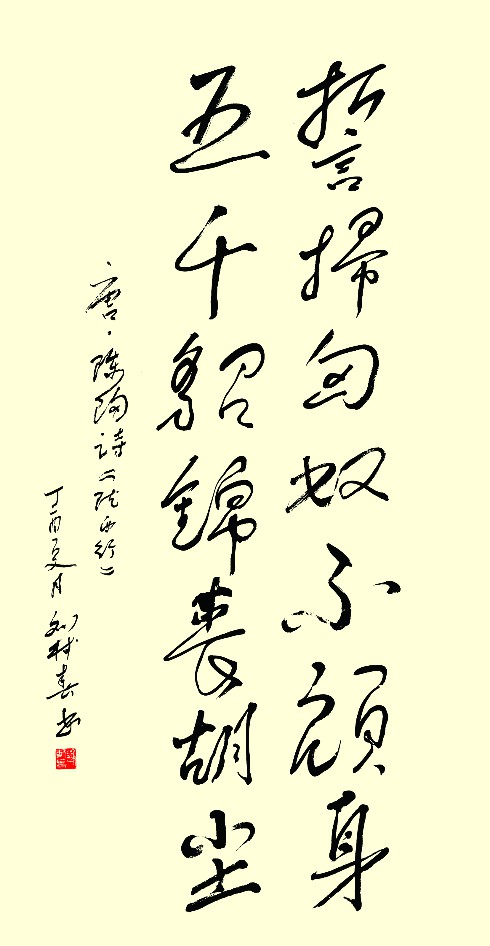 誓掃匈奴不顧身
五千貂錦喪胡塵
唐·陈陶诗《陇西行》
丁酉夏月 刘 书